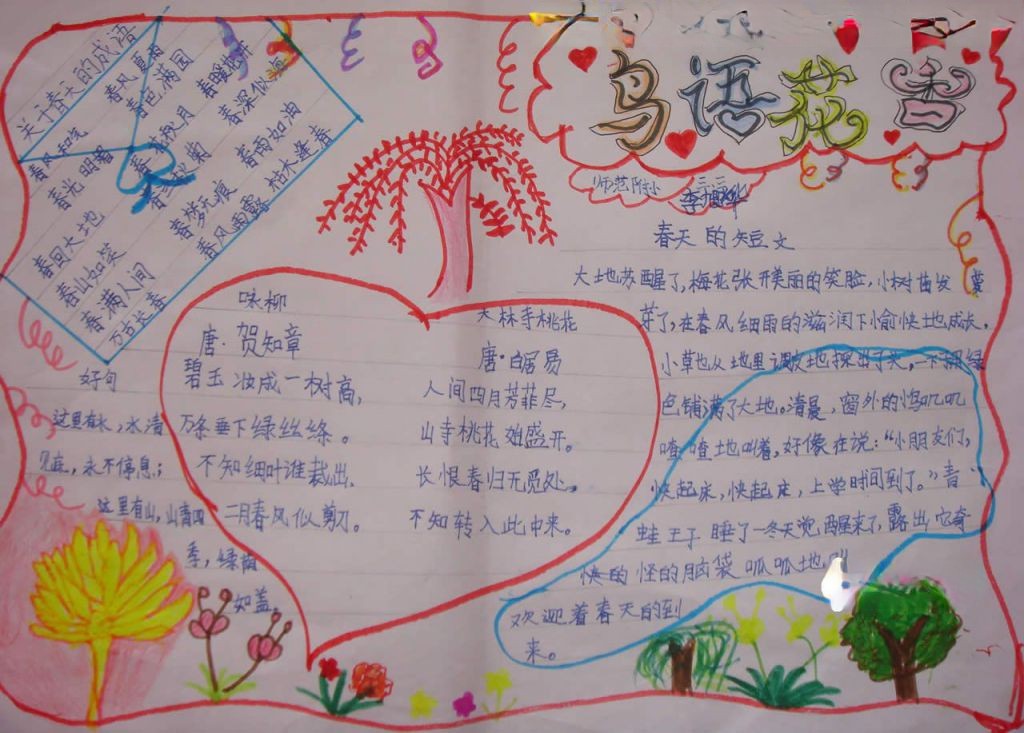 鸟语花香
师范附小
关于春天的成语
春风和气
春光明媚
春回大地
春山如笑
春满人间
万古长春
春色满园
春花秋月
春暖花开
春深似海
春雨如油
春梦无痕
春风雨露
枯木逢春
咏柳
唐·贺知章
碧玉妆成一树高，
万条垂下绿丝绦。
不知细叶谁裁出，
二月春风似剪刀。
大林寺桃花
唐·白居易
人间四月芳菲尽，
山寺桃花始盛开。
长恨春归无觅处，
不知转入此中来。
好句
这里有水，水清
见底，永不停息；
这里有山，山青四
季，绿荫
如盖。
春天的短文
大地苏醒了，梅花张开美丽的笑脸，小树苗发
芽了，在春风细雨的滋润下愉快地成长。
小草也从地里调皮地探出了头，一下把绿
色铺满了大地。清晨，窗外的鸟叽叽
喳喳地叫着，好像在说：“小朋友们，
快起床，快起床，上学时间到了。”青
蛙王子睡了一冬天觉醒来了，露出它奇
怪的脑袋呱呱地叫
欢迎着春天的到
来。